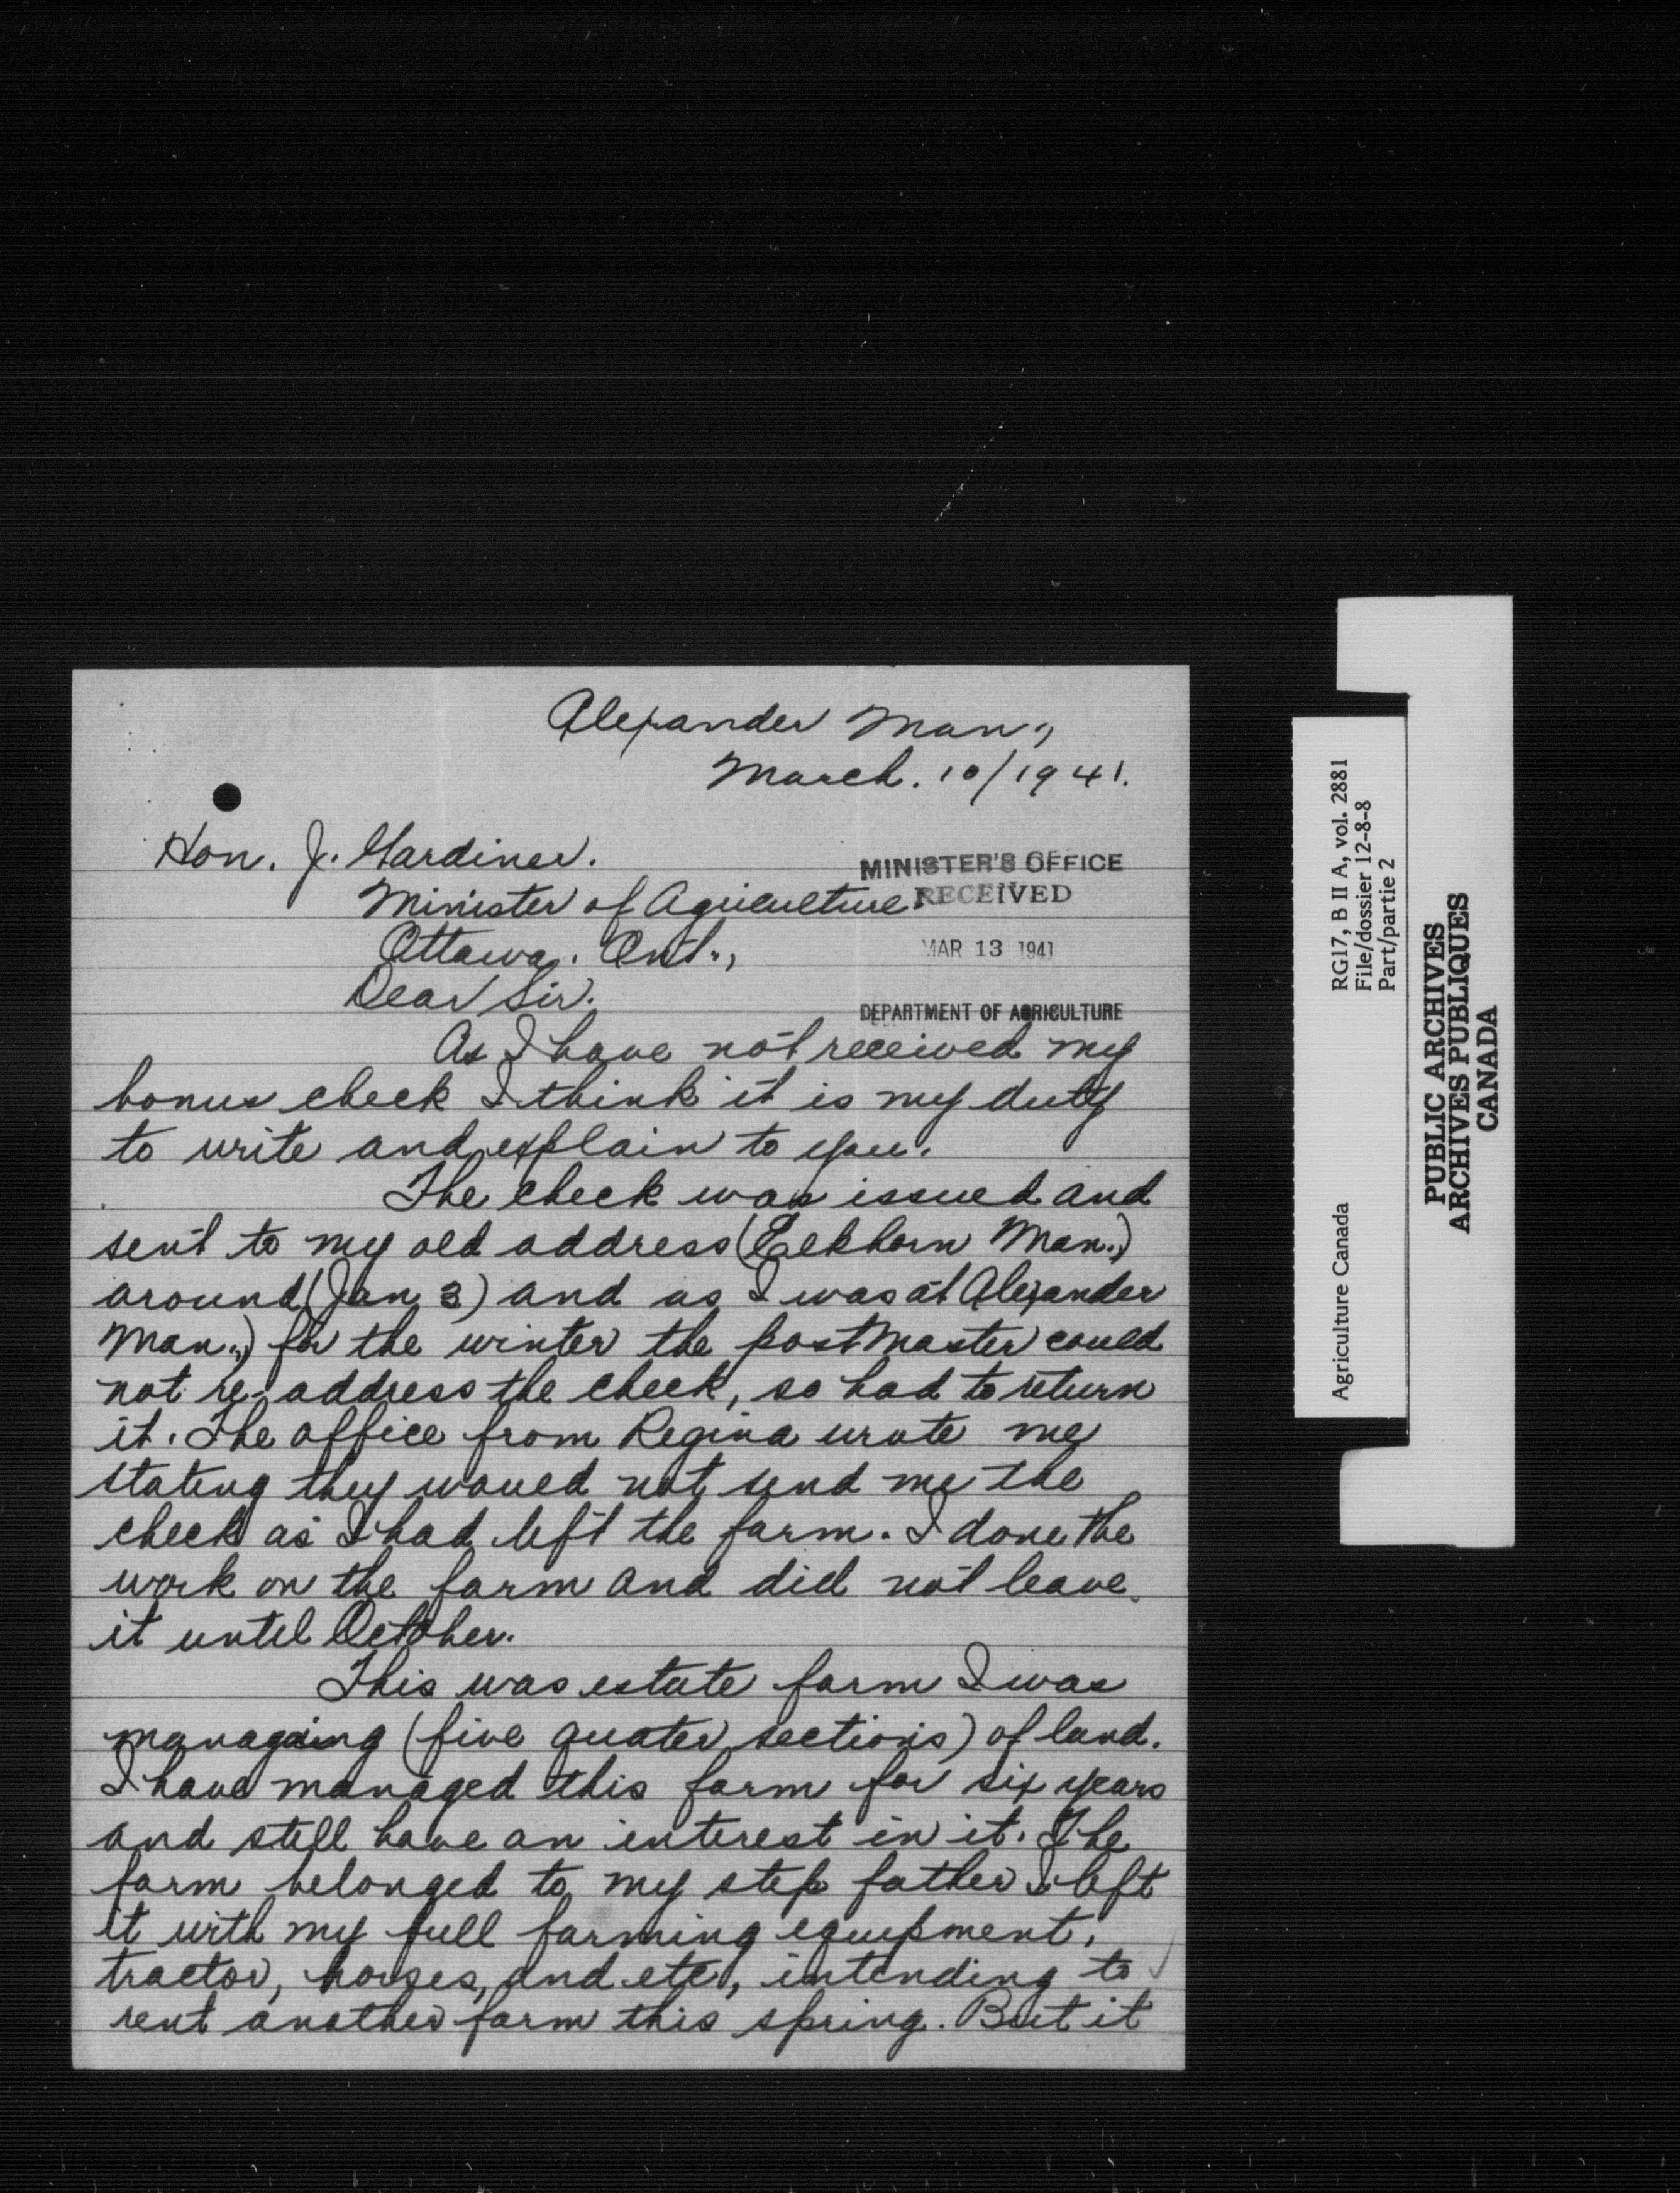 Alexander Man.,
March. 10/1941.
Hon. J. Gardiner.
Minister of Agriculture.
Ottawa. Ont.,
Dear Sir.
MINISTER'S OFFICE
RECEIVED
MAR 13 1941
DEPARTMENT OF AGRICULTURE
As I have not received my
bonus check I think it is my duty
to write and explain to you.
The check was issued and
sent to my old address (Elkhorn Man.,)
around (Jan 3) and as I was at Alexander
Man.,) for the winter the postmaster could
not re-address the check, so had to return
it. The office from Regina wrote me
stating they would not send me the
check as I had left the farm. I done the
work on the farm and did not leave
it until October.
This was estate farm I was
managing (five quater sections) of land.
I have managed this farm for six years
and still have an interest in it. The
farm belonged to my step father I left
it with my full farming equipment,
tractor, horses, and etc, intending to
rent another farm this spring. But it
Agriculture Canada
RG17, B II A, vol. 2881
File/dossier 12-8-8
Part/partie 2
PUBLIC ARCHIVES
ARCHIVES PUBLIQUES
CANADA